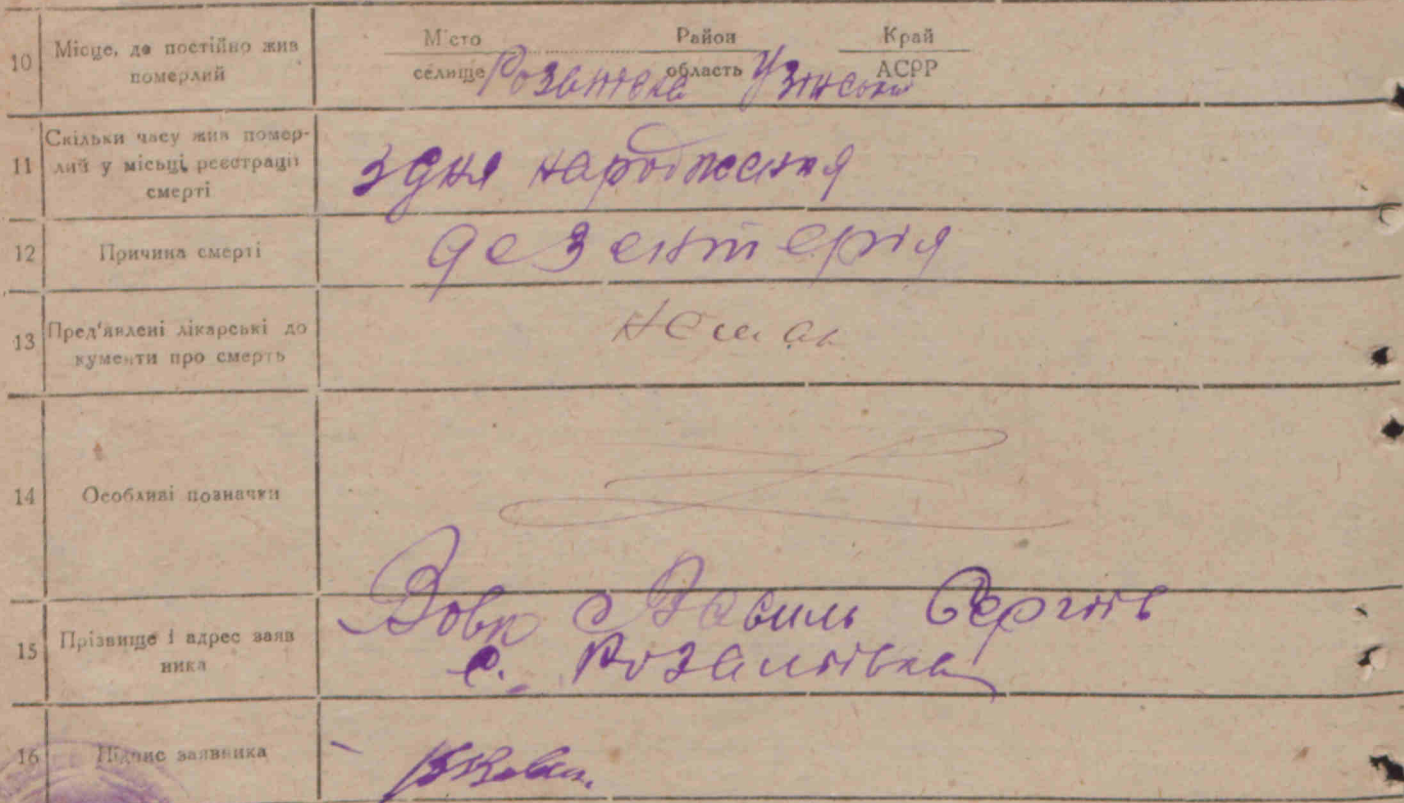 10 Місце, де постійно жив померлий
Місто Район Край
селище область АСРР
Узінськ
11 Скільки часу жив помер-
лий у місці реєстрації
смерті
з дня народження
12 Причина смерті
дезентерія
13 Пред'явлені лікарські до
кументи про смерть
Немає
14 Особливі позначки
15 Прізвище і адрес заяв
ника
Вовк Василь Сергіїв
с. Розаліївка
16 Підпис заявника